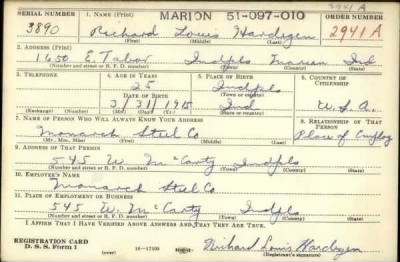 2941 A
SERIAL NUMBER 1. NAME (Print) MARION 51-097-010 ORDER NUMBER
3890 Richard Louis Hardegen 2941 A
(First) (Middle) (Last)
2. ADDRESS (Print)
1650 E. Tabor Indpls Marion Ind
(Number and street or R. F. D. number) (Town) (County) (State)
3. TELEPHONE 4. AGE IN YEARS 5. PLACE OF BIRTH 6. COUNTRY OF CITIZENSHIP
25 Indpls
DATE OF BIRTH (Town or county)
3/31/1915 Ind U.S.A.
(Exchange) (Number) (Mo.) (Day) (Yr.) (State or country)
7. NAME OF PERSON WHO WILL ALWAYS KNOW YOUR ADDRESS 8. RELATIONSHIP OF THAT PERSON
Monarch Steel Co Place of Employ
(Mr., Mrs., Miss) (First) (Middle) (Last)
9. ADDRESS OF THAT PERSON
545 W. McCarty Indpls
(Number and street or R. F. D. number) (Town) (County) (State)
10. EMPLOYER'S NAME
Monarch Steel Co
11. PLACE OF EMPLOYMENT OR BUSINESS
545 W. McCarty Indpls
(Number and street or R. F. D. number) (Town) (County) (State)
I AFFIRM THAT I HAVE VERIFIED ABOVE ANSWERS AND THAT THEY ARE TRUE.
REGISTRATION CARD
D. S. S. Form 1 16-17105 Richard Louis Hardegen
(Registrant's signature)